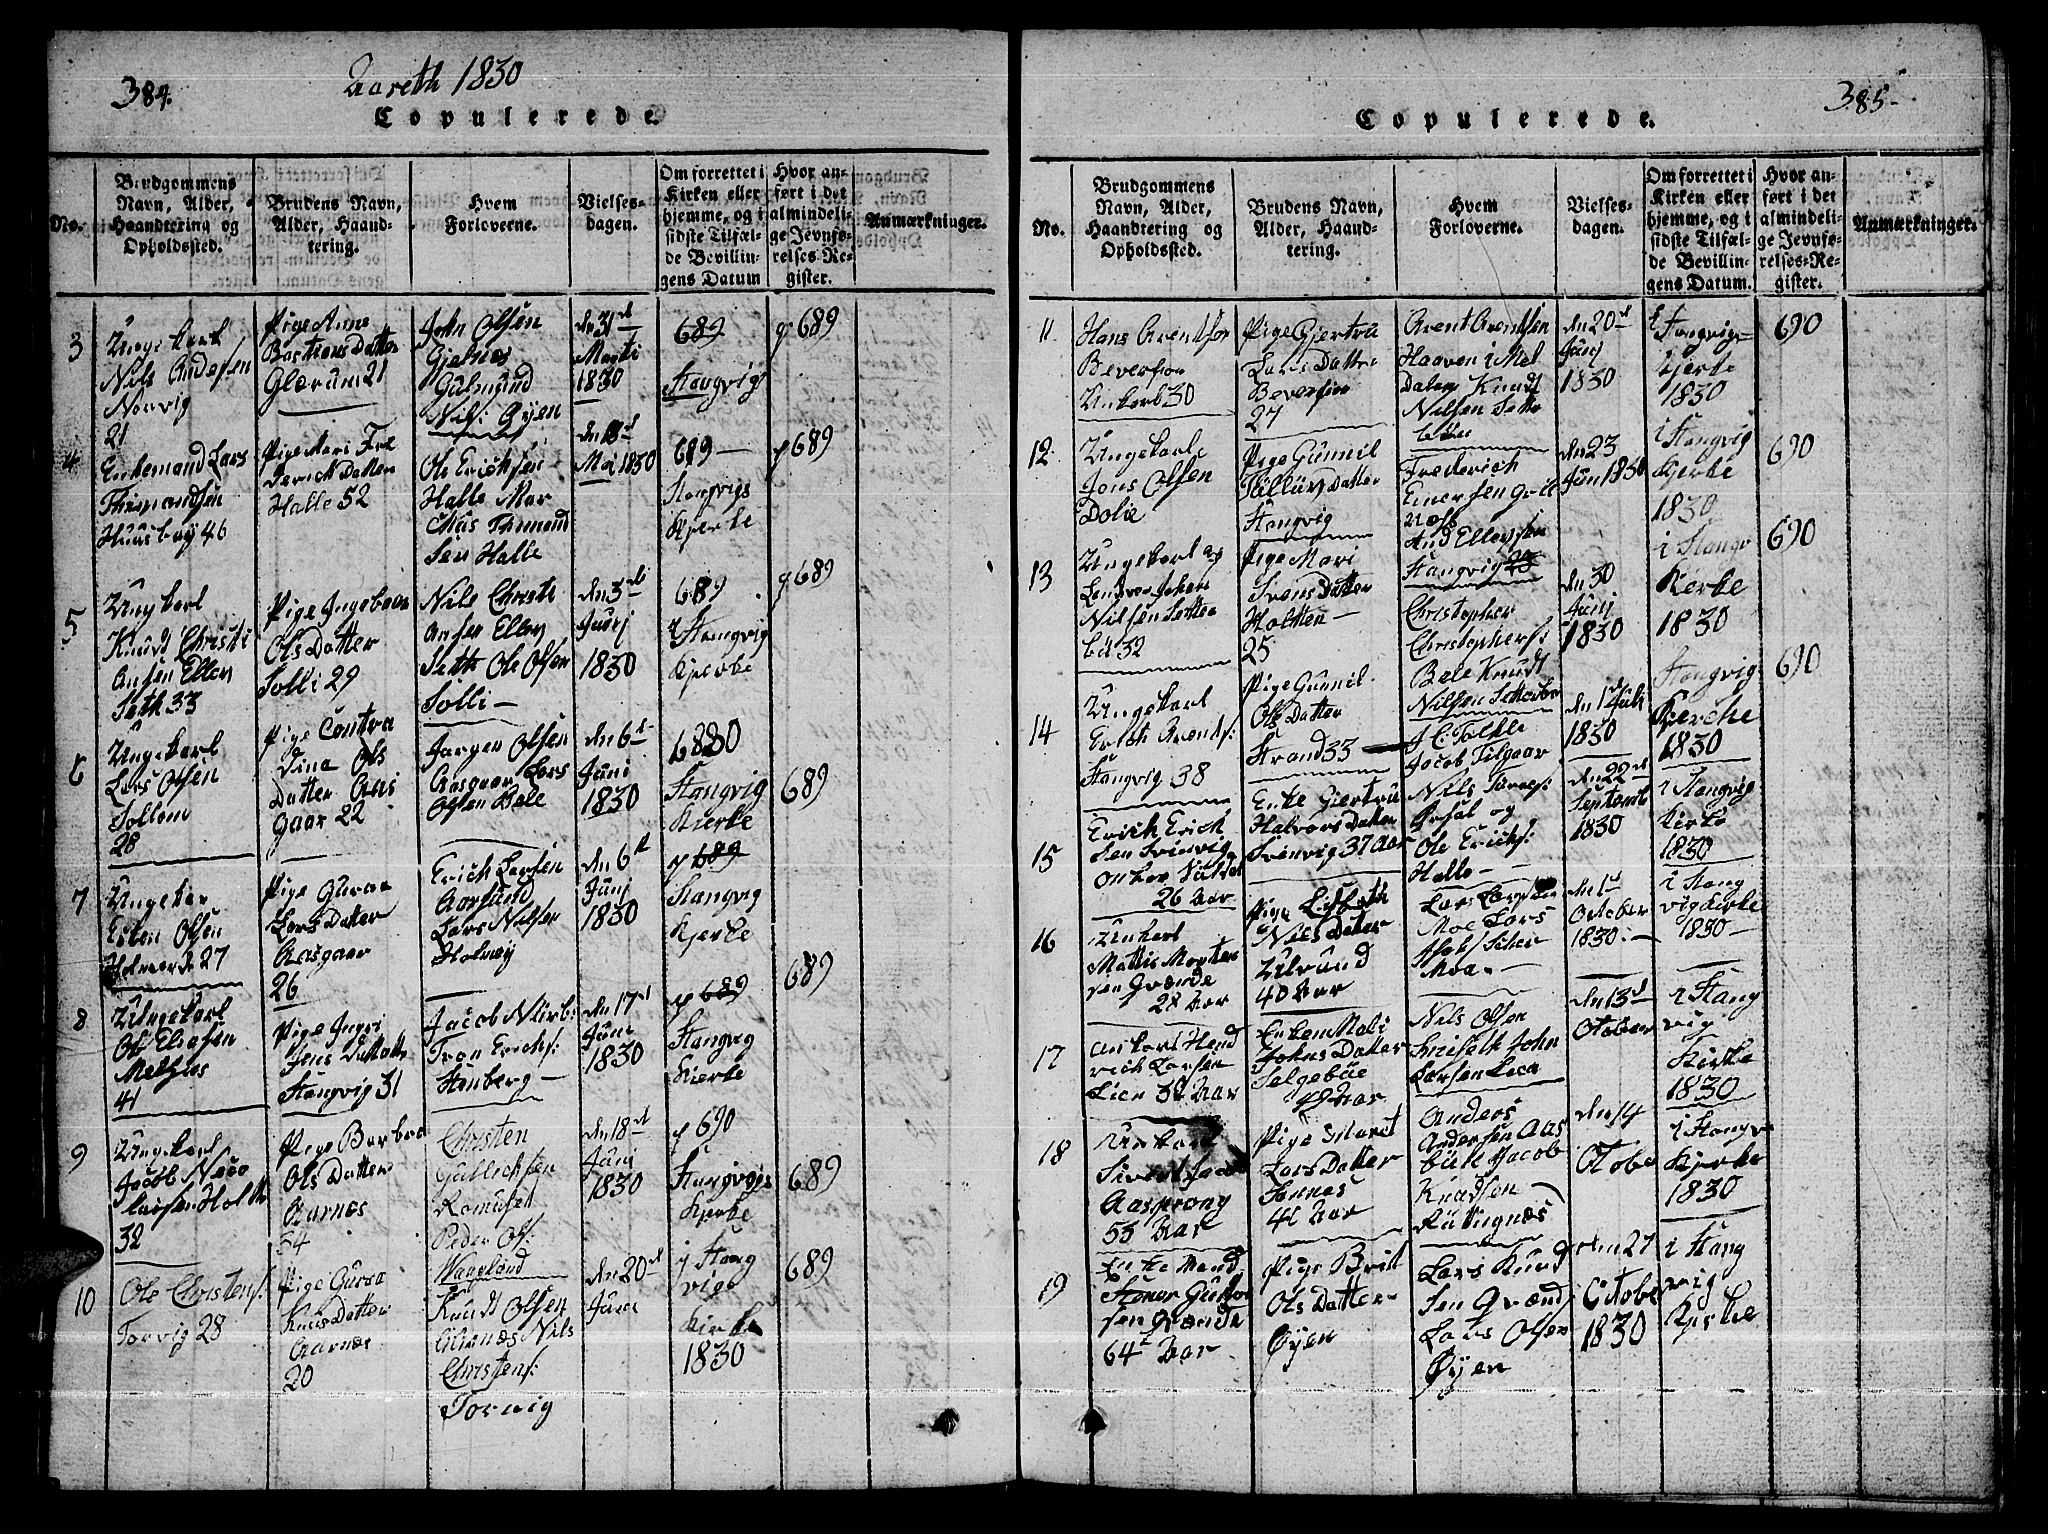 384.
Aareth 1830
Copulerede.
No.
Brudgommens
Navn, Alder,
Haandtering og
Opholdssted.
Brudens Navn,
Alder, Haand-
tering.
Hvem
Forloverne.
Vielses-
dagen.
Om forrettet i
Kirken eller
hjemme, og i
sidste Tilfæl-
de Bevillin-
gens Datum
Hvor an-
ført i det
almindeli-
ge Jevnfø-
relses-Re-
gister.
Anmærkninger.
3
Ungekarl
Nils Andesen
Norvig
21
Pige Anne
Bastians Datter
Glærum 21
John Olsen
Gjelnæs
Gulmund
Nils: Øyen
den 31d
Marti
1830
689
Stangvigs
689
4
Enkemand Lars
Thimandsen
Huusbuy 46
Pige Mari Fre
derich Datter
Halle 52
Ole Erichsen
Halle Mar
Chus Themand
Sen Halle
den 18d
Mai 1830
689
Stangvigs
Kjerke
689
5
Ungkarl
Knud Christi
Ansen Eller
Seth 33
Pige Ingebaar
Ols Datter
Solli 29
Nils Christi
Ansen Eller
Seth Ole Olsen
Solli
den 3d
Junj
1830
689
Stangvig
Kjerke
689
6
Ungekarl
Lars Olsen
Sollem
28
Pige Contra
Dina Ols
Datter Aas
Gaar 22
Jørgen Olsen
Aasgaar Lars
Olsen Bele
den 6d
Juni
1830
Stangvig
Kierke
689
7
Ungekar
Esten Olsen
27
Pige Guraa
Lars Datter
Aasgaar
26
Erich Larsen
Aarlund
Lars Nilsen
Holvey
den 6d
Junj
1830
689
Stangvig
Kjerke
689
8
Ungekarl
Ole Eliasen
Melhus
41
Pige Ingri
Jens Datter
Stangvig 31
Jacob Niirb:
Tron Erichs:
Stenberg
den 17d
Juni
1830
689
Stangvig
Kierke
9
Ungekarl
Jacob Nico
laisen Holth
32
Pige Barbra
Ols Datter
Aarnæs
34
Christen
Gudlichsen
Romunsed
Peder Ols:
Vaagelund
den 18d
Juni
1830
690
Stangvigs
Kjerke
689
10
Ole Christens:
Torvig 28
Pige Guraa
Knus Datter
Aarnæs
20
Knud Olsen
Aarnæs Nils
Christens:
Torvig
den 20d
Juni
i Stang
vigs
Kirke
1830
689
385
Copulerede.
No.
Brudgommens
Navn, Alder,
Haandtering og
Opholdssted.
Brudens Navn,
Alder, Haand-
tering.
Hvem
Forloverne.
Vielses-
dagen.
Om forrettet i
Kirken eller
hjemme, og i
sidste Tilfæl-
de Bevillin-
gens Datum.
Hvor an-
ført i det
almindeli-
ge Jevnfø-
relses-Re-
gister.
Anmærkninger.
11
Hans Arentsen
Beverfior
Unkarl 30
Pige Gjertru
Lars Datter
Beverfior
27
Arent Arentsen
Haaven i Mel
Dalen Knud
Nilsen Sætter
büe
den 20d
Junj
1830
i Stangvigs
Kjerke
1830
690
12
Ungekarle
Jons Olsen
Dolie
Pige Gunnil
Tølløvs Datter
Stangvig
Frederich
Enersen Qvil
And Ellevsen
Stangvig
den 23
Jun 1830
i Stangvig
Kjerke
1830
690
13
Ungekarl og
Nilsen Setter
bü 32
Pige Mari
Svens Datter
Holtten
25
Christopher
Christophers:
Bele Knud
Nilsen Setterbu
den 30
Junj
1830
i Stangv
Kerke
1830
690
14
Ungekarl
Erich Arents:
Stangvig 38
Pige Gunnil
Ole Datter
Strand 33
Jacob Tilgaar
den 1d Juli
1830
Stangvig
Kjerche
1830
690
15
Erich Erich
sen Svinvig
26 Aar
Enke Giertru
Halvors Datter
Svinvig 37 Aar
Nils
Ørsal og
Ole Erichs:
Halle
den 22d
Septemb
1830
i Stangvig
Kirke
1830
16
Unkarl
Mattis Morten
sen Qvænde
28 Aar
Pige Lisbeth
Nils Datter
Ulvund
40 Aar
Lars Larsen
Moe Lars
Moa
den 1d
October
1830
i Stang
vig Kirke
1830
17
Unkarl Hend
rich Larsen
Lien 34 Aar
Enken Mali
Johns Datter
Selgebüe
42 Aar
Nils Olsen
Sniseth John
Larsen Lien
den 13d
Otober
i Stang
vig
Kirke
1830
18
Unkarl
Sivert Jacob
Aasprong
53 Aar
Pige Maret
Lars Datter
Sannæs
41 Aar
Anders
Andersen Aas
bük Jacob
Knudsen
Røttingnæs
den 14
Otobe
i Stangv
Kjerke
1830
19
Enke Mand
Stener Gudm
sen Qvænde
64 Aar
Pige Britt
Ols Datter
Øyen
Lars Knud
Sen Qvænd
Lars Olsen
Øyen
den 27
Octobe
1830
i Stang
vig
Kjerke